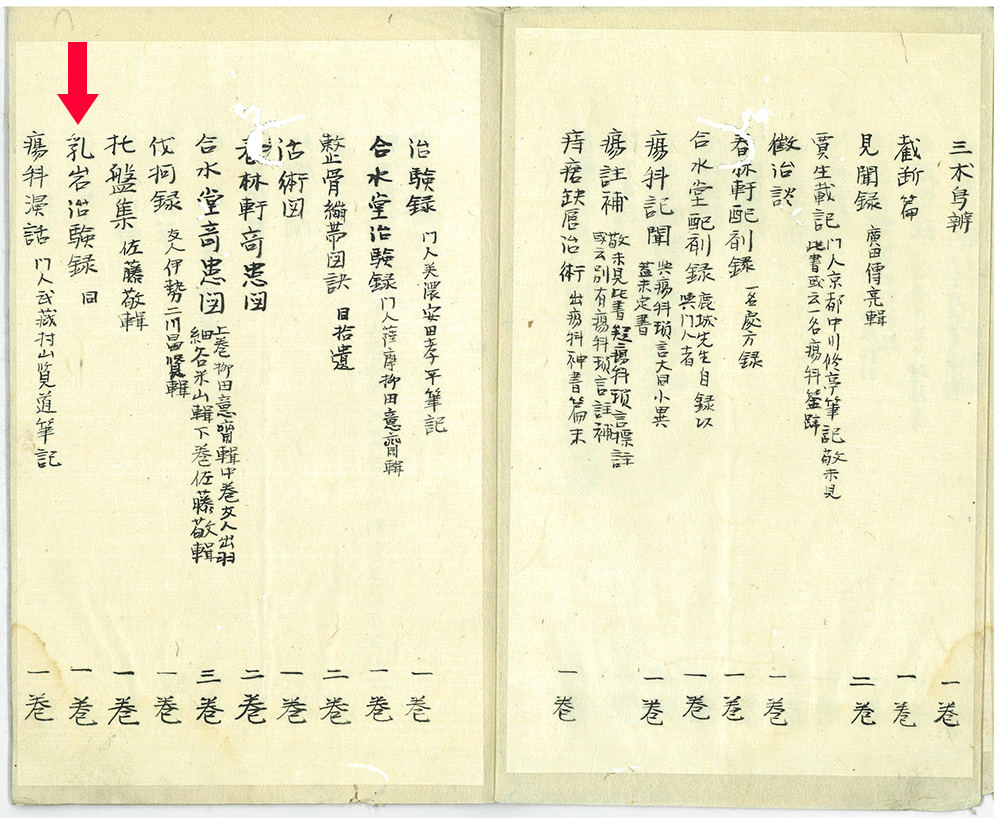 三木烏辨 一巻
截断篇 一巻
見聞録 廣田傳亮輯 二巻
賈生載記 门人京都中川修亭筆記敬未見
此書或云一名瘍科筌蹄
徴治談 一巻
春林軒配剤録 一名處方録 一巻
合水堂配剤録 鹿城先生自録以
與门人者 一巻
瘍科記聞 與瘍科瑣言大同小異
蓋未定書 一巻
瘍註補 敬未見此書疑瘍科瑣言標註
或云別有瘍科瑣言註補
痔瘻缺唇治術 出瘍科神書篇末 一巻
治験録 门人美濃安田孝平筆記 一巻
合水堂治験録 门人薩摩柳田意齋輯 一巻
整骨繃帯図訣 目拾遺 二巻
治術図 一巻
春林軒竒患図 二巻
合水堂竒患図 上巻柳田意齋輯中巻友人出羽
細谷米山輯下巻佐藤敬輯 三巻
伐柯録 友人伊勢二川昌賢輯 一巻
托盤集 佐藤敬輯 一巻
乳岩治験録 同 一巻
瘍科漫話 门人武蔵村山賢道筆記 一巻